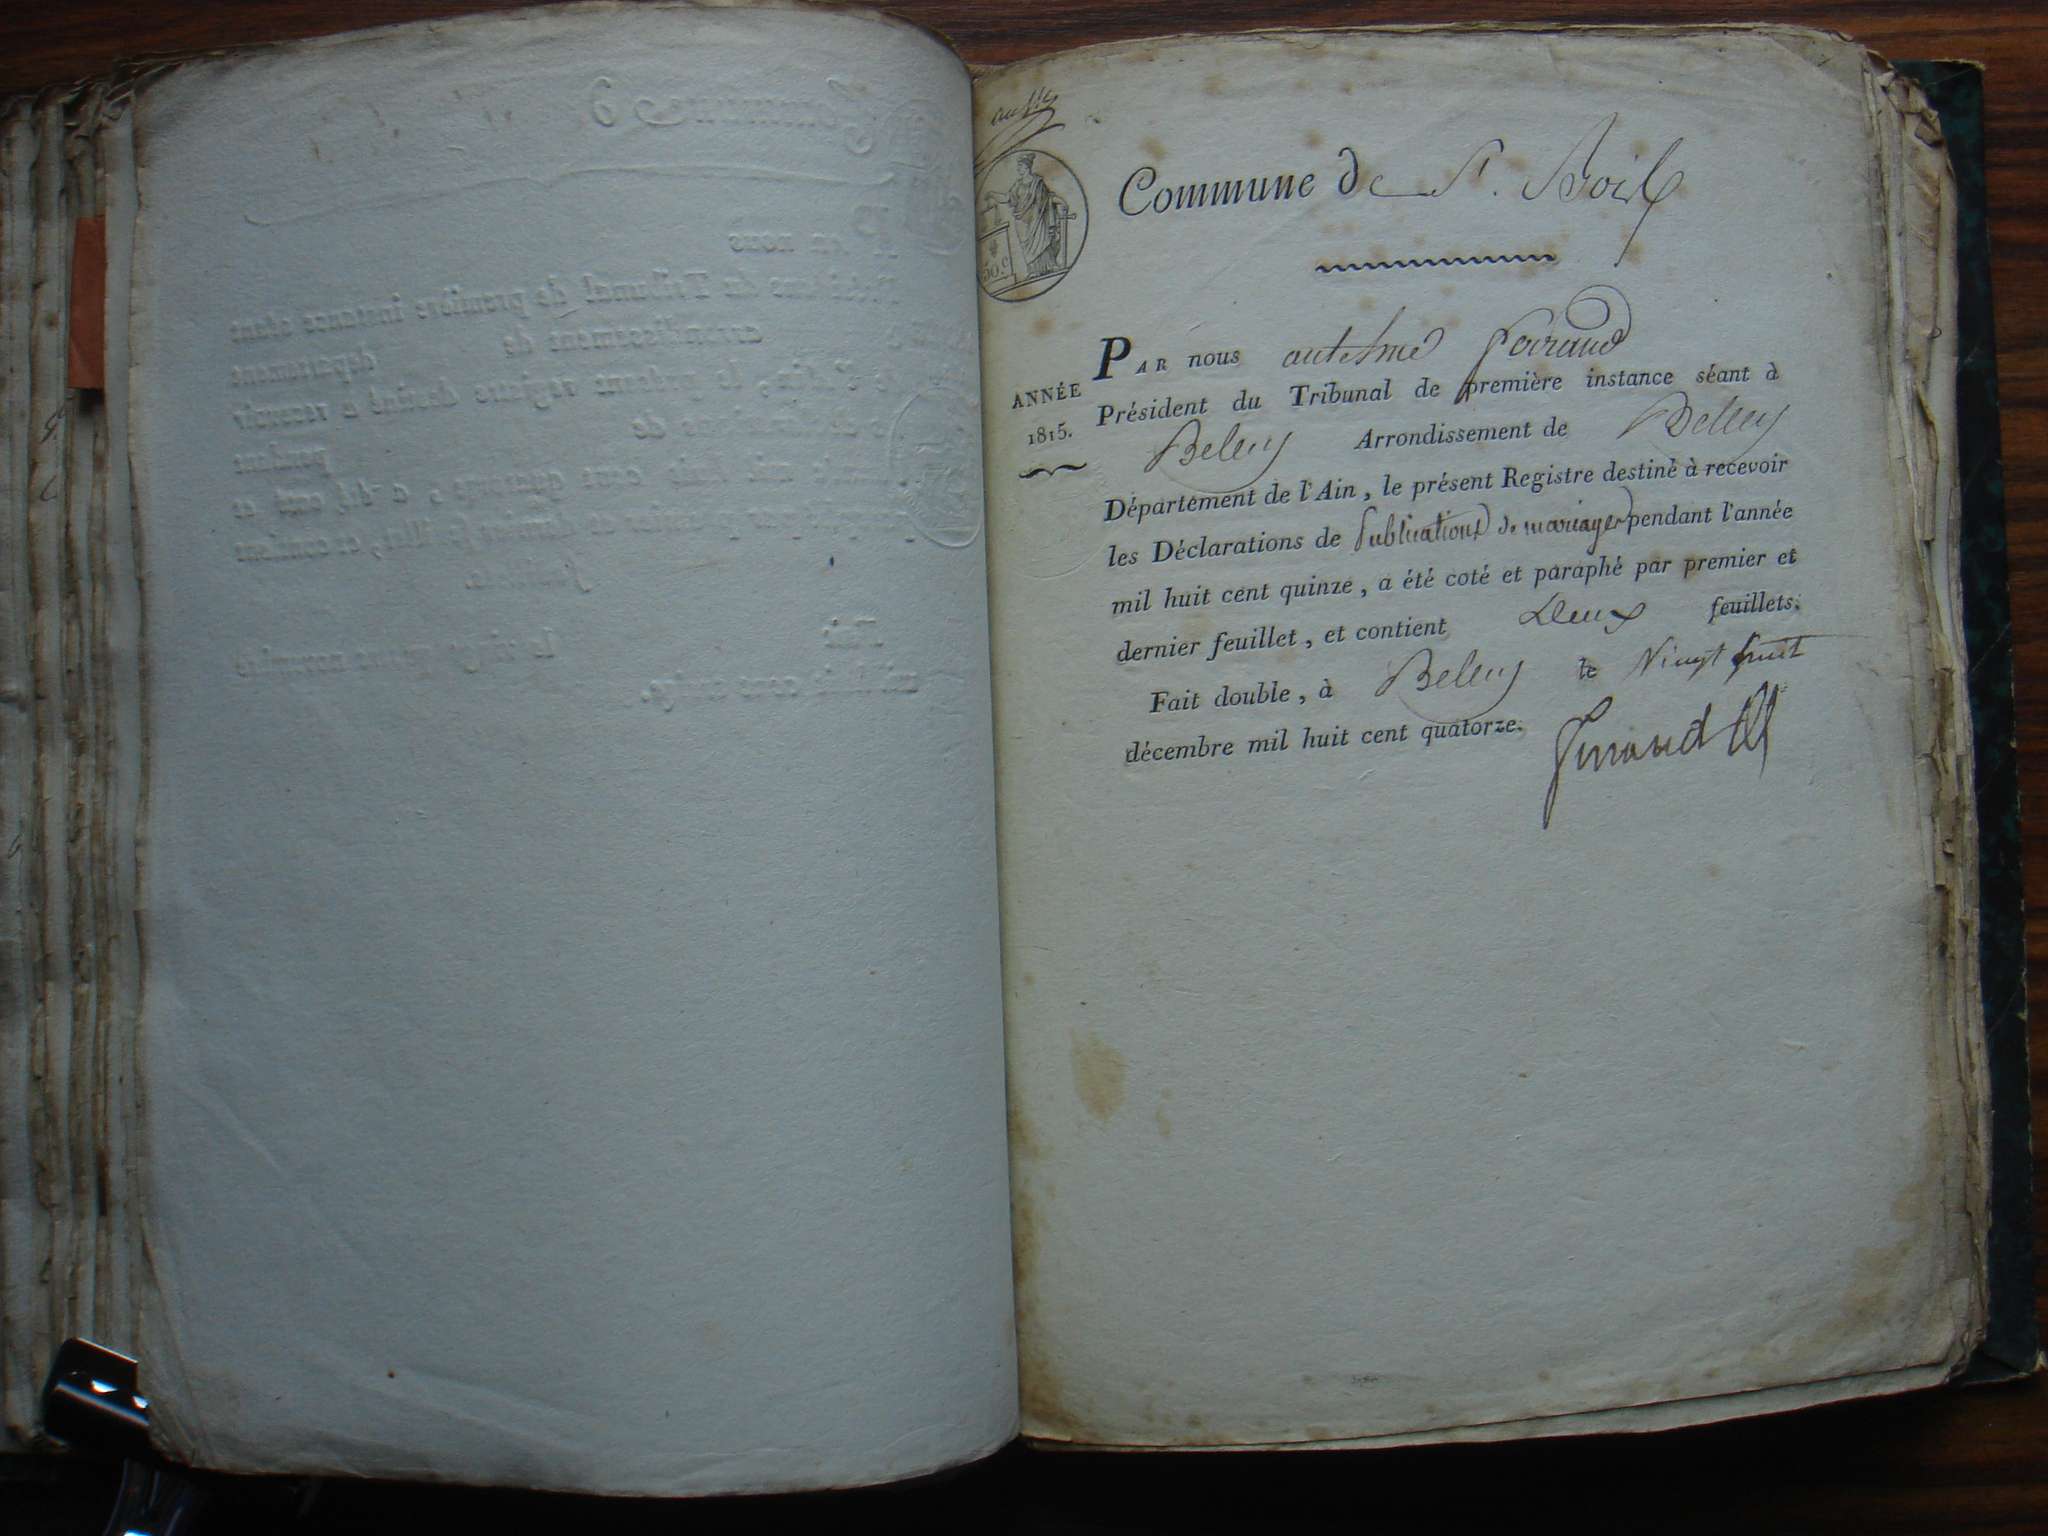 Commune de St. Boil
50.c
ANNÉE
1815.
PAR nous antelme ferraud
Président du Tribunal de première instance séant à
Belley Arrondissement de Belley
Département de l'Ain, le présent Registre destiné à recevoir
les Déclarations de Publications de mariages pendant l'année
mil huit cent quinze, a été coté et paraphé par premier et
dernier feuillet, et contient Deux feuillets.
Fait double, à Belley le Vingt huit
décembre mil huit cent quatorze.